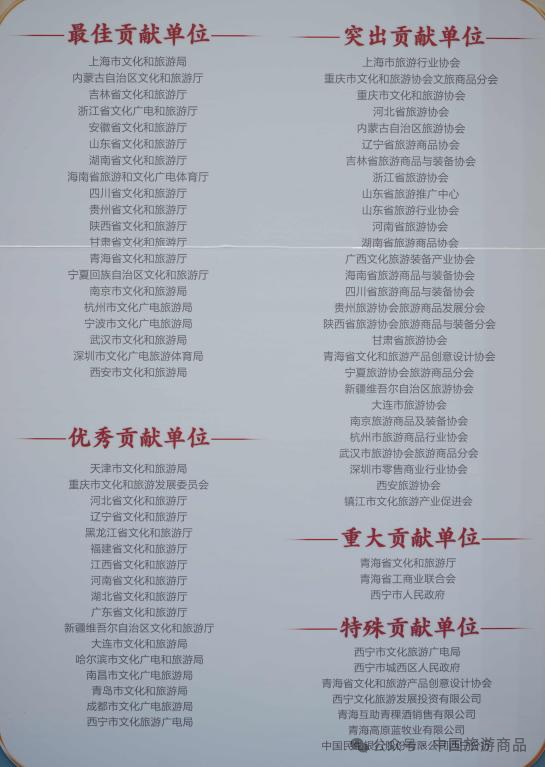 最佳贡献单位
上海市文化和旅游局
内蒙古自治区文化和旅游厅
吉林省文化和旅游厅
浙江省文化广电和旅游厅
安徽省文化和旅游厅
山东省文化和旅游厅
湖南省文化和旅游厅
海南省旅游和文化广电体育厅
四川省文化和旅游厅
贵州省文化和旅游厅
陕西省文化和旅游厅
甘肃省文化和旅游厅
青海省文化和旅游厅
宁夏回族自治区文化和旅游厅
南京市文化和旅游局
杭州市文化广电旅游局
宁波市文化广电旅游局
武汉市文化和旅游局
深圳市文化广电旅游体育局
西安市文化和旅游局
优秀贡献单位
天津市文化和旅游局
重庆市文化和旅游发展委员会
河北省文化和旅游厅
辽宁省文化和旅游厅
黑龙江省文化和旅游厅
福建省文化和旅游厅
江西省文化和旅游厅
河南省文化和旅游厅
湖北省文化和旅游厅
广东省文化和旅游厅
新疆维吾尔自治区文化和旅游厅
大连市文化和旅游局
哈尔滨市文化广电和旅游局
南昌市文化广电旅游局
青岛市文化和旅游局
成都市文化广电旅游局
西宁市文化旅游广电局
突出贡献单位
上海市旅游行业协会
重庆市文化和旅游协会文旅商品分会
重庆市文化和旅游协会
河北省旅游协会
内蒙古自治区旅游协会
辽宁省旅游商品协会
吉林省旅游商品与装备协会
浙江省旅游协会
山东省旅游推广中心
山东省旅游行业协会
河南省旅游协会
湖南省旅游商品协会
广西文化旅游装备产业协会
海南省旅游商品与装备协会
四川省旅游商品与装备协会
贵州旅游协会旅游商品发展分会
陕西省旅游协会旅游商品与装备分会
甘肃省旅游协会
青海省文化和旅游产品创意设计协会
宁夏旅游协会旅游商品分会
新疆维吾尔自治区旅游协会
大连市旅游协会
南京旅游商品及装备协会
杭州市旅游商品行业协会
武汉市旅游协会旅游商品分会
深圳市零售商业行业协会
西安旅游协会
镇江市文化旅游产业促进会
重大贡献单位
青海省文化和旅游厅
青海省工商业联合会
西宁市人民政府
特殊贡献单位
西宁市文化旅游广电局
西宁市城西区人民政府
青海省文化和旅游产品创意设计协会
西宁文化旅游发展投资有限公司
青海互助青稞酒销售有限公司
青海高原蓝牧业有限公司
公众号·中国旅游商品